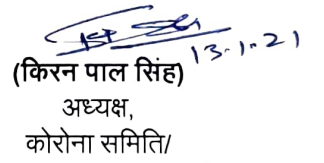 13.1.21
(किरन पाल सिंह)
अध्यक्ष,
कोरोना समिति/